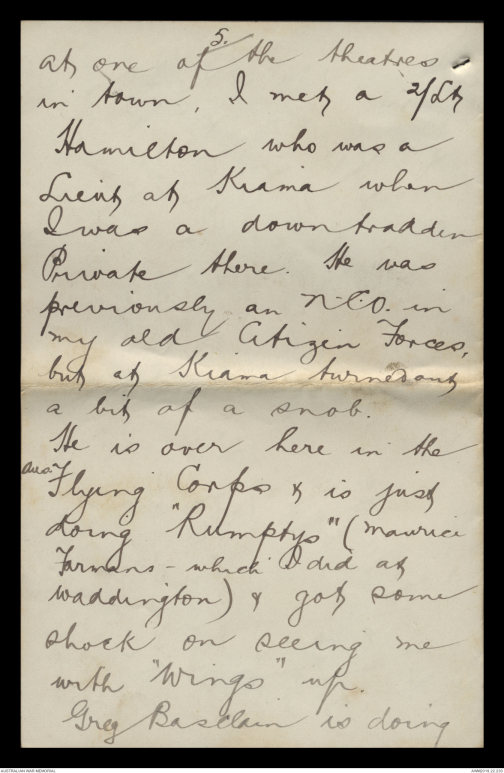 5.
at one of the theatres
in town, I met a 2/Lt
Hamilton who was a
Lieut at Kiama when
I was a downtrodden
Private there. He was
previously an N.C.O. in
my old Citizen Forces,
but at Kiama turned out
a bit of a snob.
He is over here in the
Aus. Flying Corps & is just
doing "Rumptys" (Maurice
Farmans - which I did at
Waddington) & got some
shock on seeing me
with "Wings" up.
Greg Basclain is doing
AUSTRALIAN WAR MEMORIAL